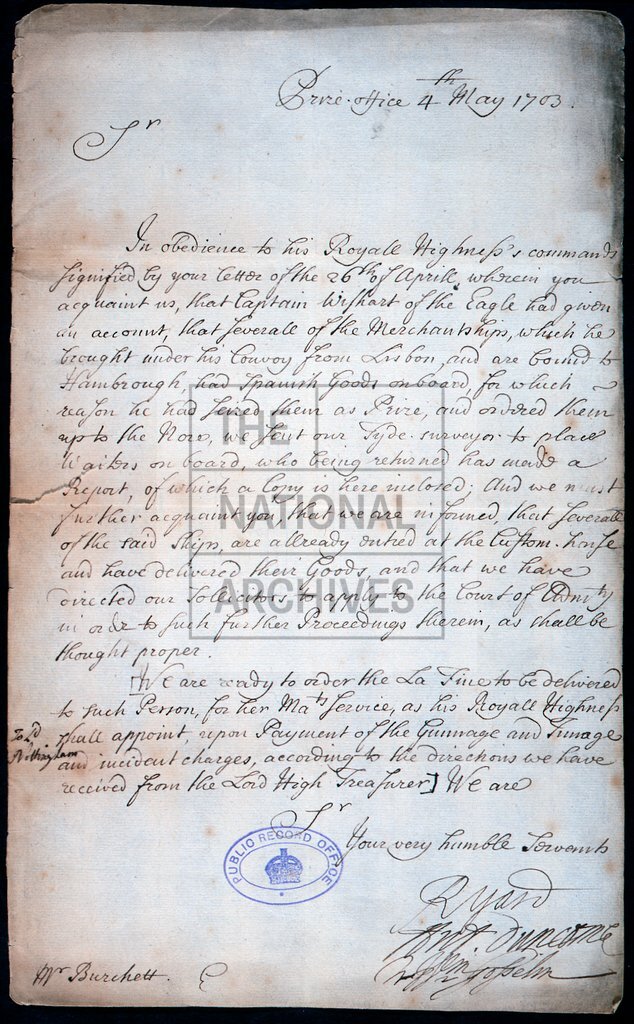 Prize-office 4th May 1703.
Sr
In obedience to his Royall Highness's commands
signified by your letter of the 26th of Aprill, wherein you
acquaint us, that Captain Wishart of the Eagle had given
an account, that severall of the Merchantships, which he
brought under his Convoy from Lisbon, and are bound to
Hambrough, had Spanish Goods on board, for which
reason he had seized them as Prize, and ordered them
up to the Nore, we sent our Tyde-surveyor to place
Waiters on board, who being returned has made a
Report, of which a Copy is here inclosed; And we must
further acquaint you, that we are informed, that severall
of the said Ships, are allready entred at the Custom-house
and have delivered their Goods, and that we have
directed our Sollicitors to apply to the Court of Admty
in ordr to such further Proceedings therein, as shall be
thought proper.
[We are ready to order the La Fine to be delivered
to such Person, for her Mats Service, as his Royall Highness
To Ld
Nottingham
shall appoint, upon Payment of the Gunnage and Tunage
and incident charges, according to the directions we have
received from the Lord High Treasurer] We are
Sr
Your very humble Servants
R Yard
Duncombe
Mr Burchett.
PUBLIC RECORD OFFICE
THE
NATIONAL
ARCHIVES